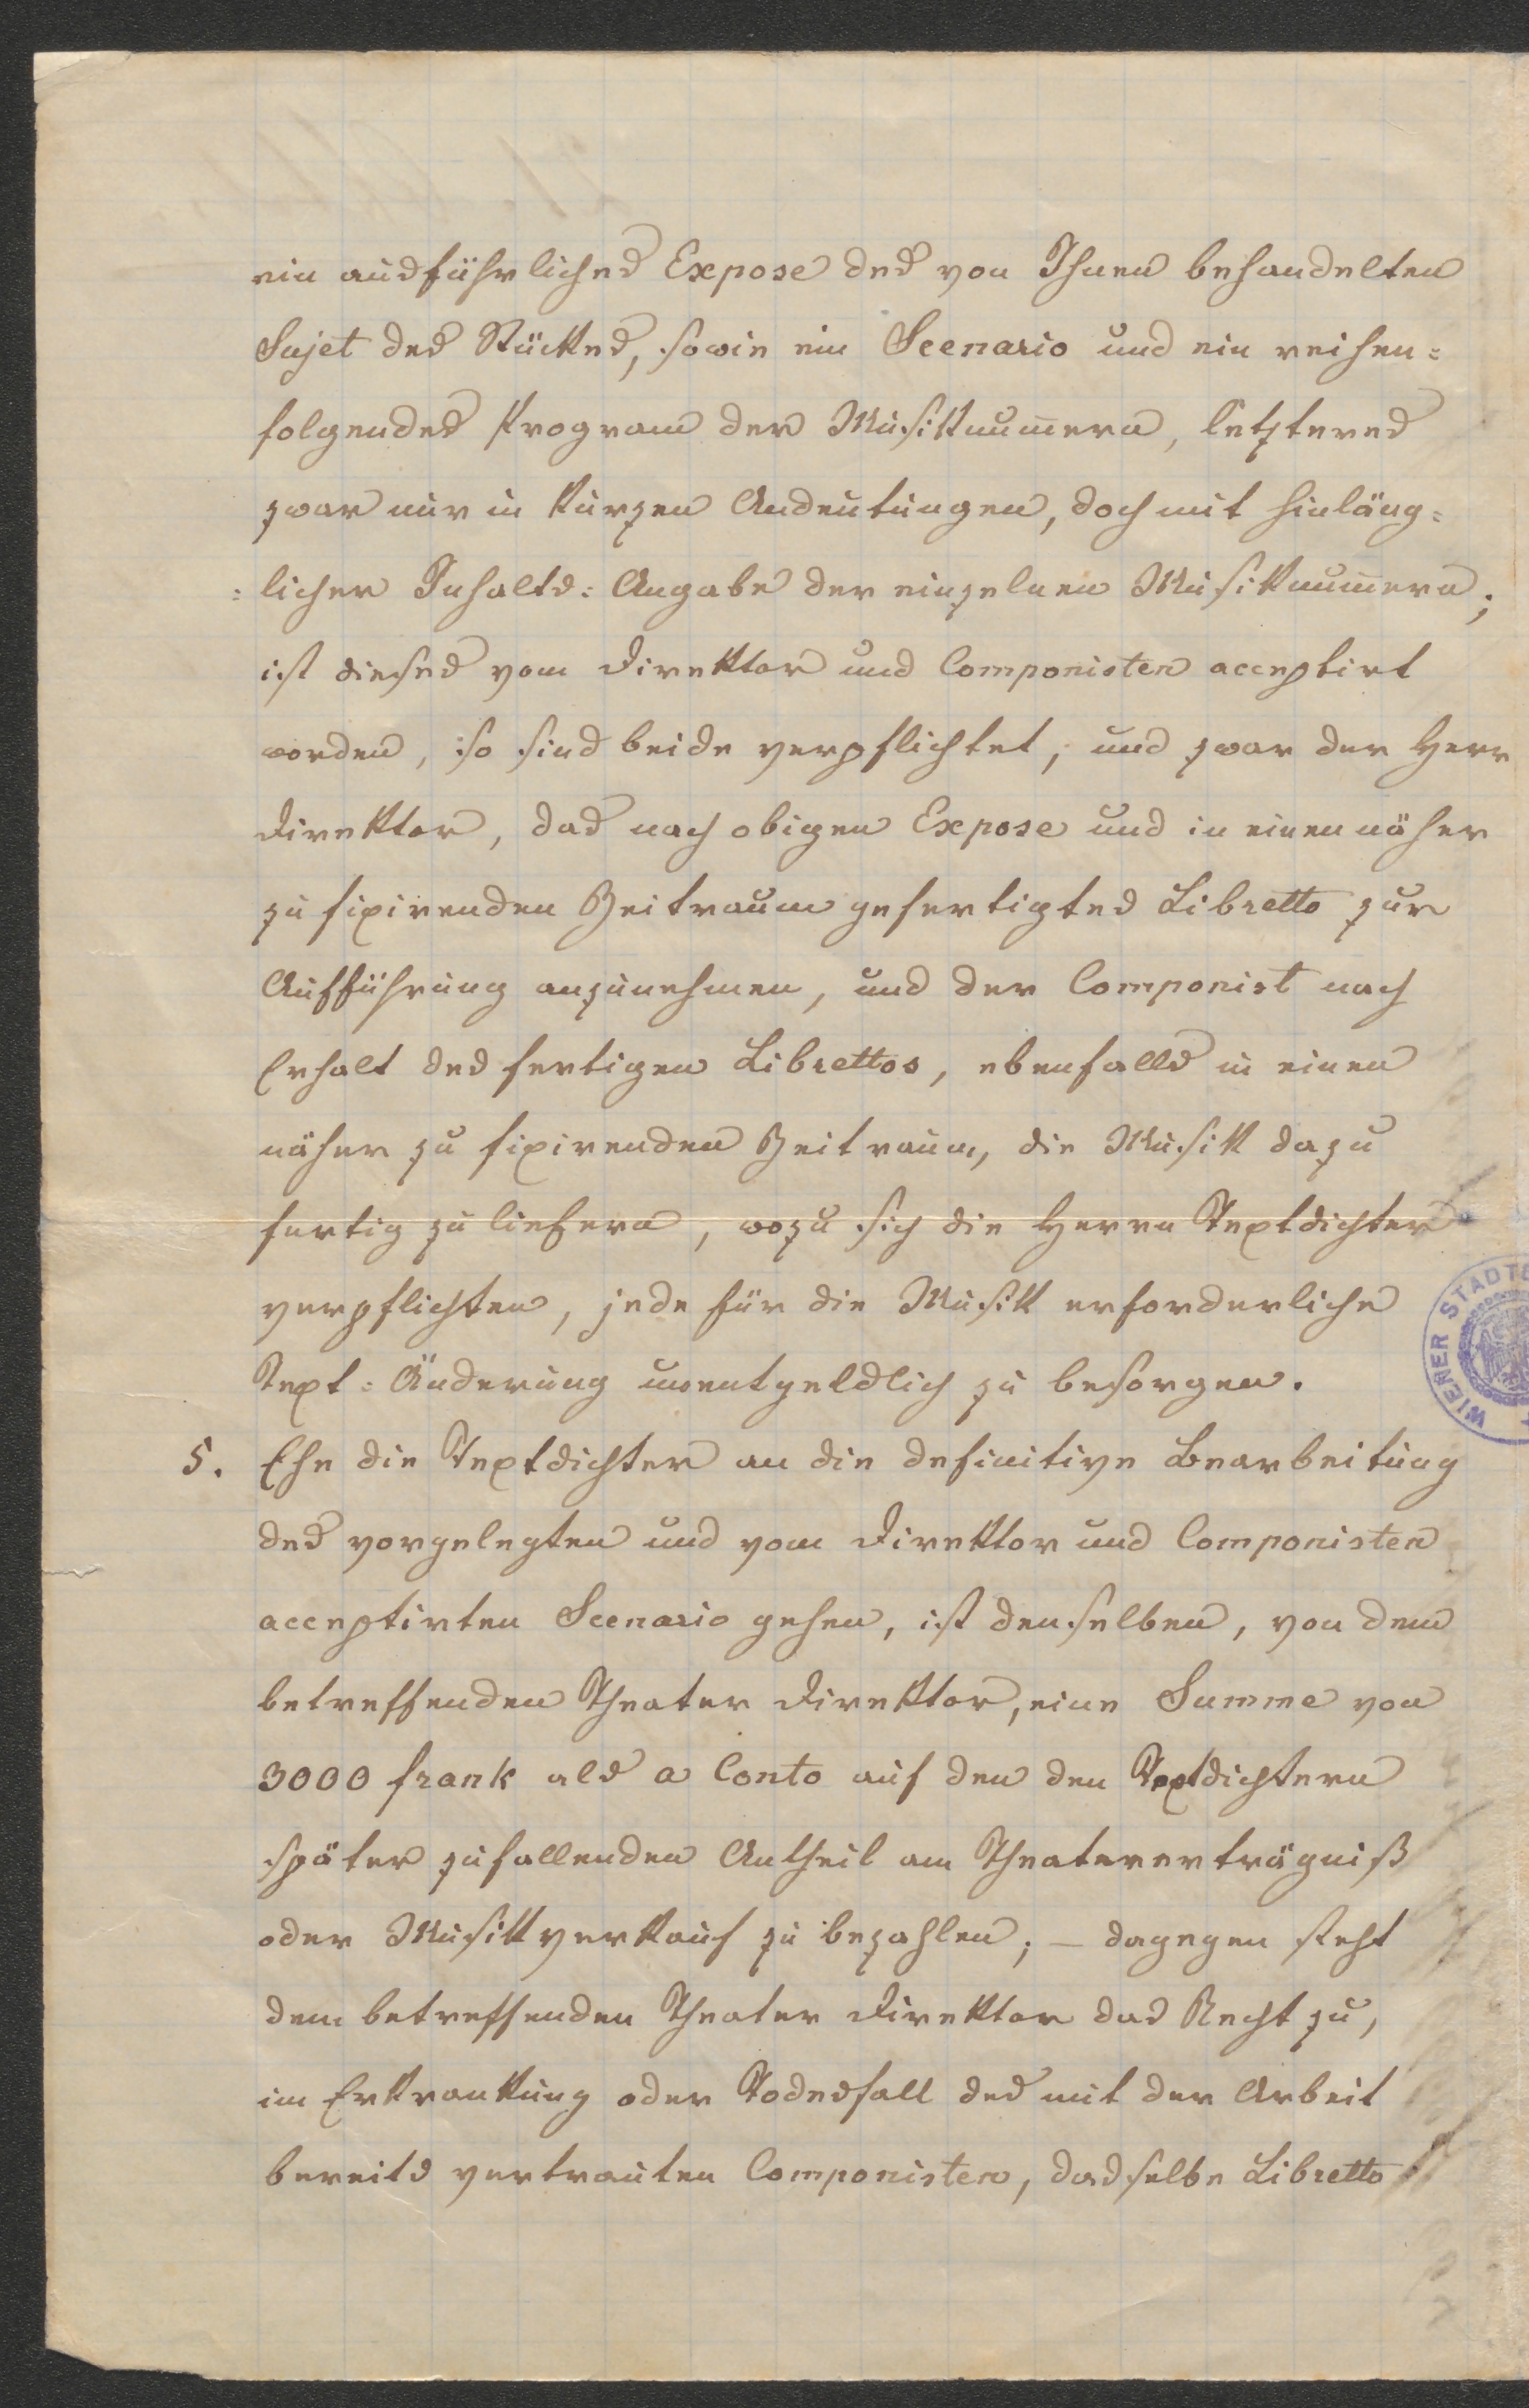 ein ausführliches Expose des von Ihnen behandelten
Sujet des Stückes, sowie ein Scenario und ein reihen=
folgendes Program der Musiknum̅ern, letzteres
zwar nur in kurzen Andeutungen, doch mit hinläng=
=licher Inhalts=Angabe der einzelnen Musiknum̅ern;
ist dieses vom Direktor und Componisten acceptirt
worden, so sind beide verpflichtet, und zwar der Herr
Direktor, das nach obigen Expose und in einen näher
zu fixirenden Zeitraum gefertigtes Libretto zur
Aufführung anzunehmen, und der Componist nach
Erhalt des fertigen Librettos, ebenfalls in einen
näher zu fixirenden Zeitraum, die Musik dazu
fertig zu liefern, wozu sich die Herrn Textdichter
verpflichten, jede für die Musik erforderliche
Text=Änderung unentgeldlich zu besorgen.
5. Ehe die Textdichter an die definitive Bearbeitung
des vorgelegten und vom Direktor und Componisten
acceptirten Scenario gehen, ist denselben, von dem
betreffenden Theater Direktor, eine Summe von
3000 frank als a Conto auf den den Textdichtern
später zufallenden Antheil am Theatererträgniß
oder Musikverkauf zu bezahlen; – dagegen steht
dem betreffenden Theater Direktor das Recht zu,
im Erkrankung oder Todesfall des mit der Arbeit
bereits vertrauten Componisten, dasselbe Libretto
WIENER STADT